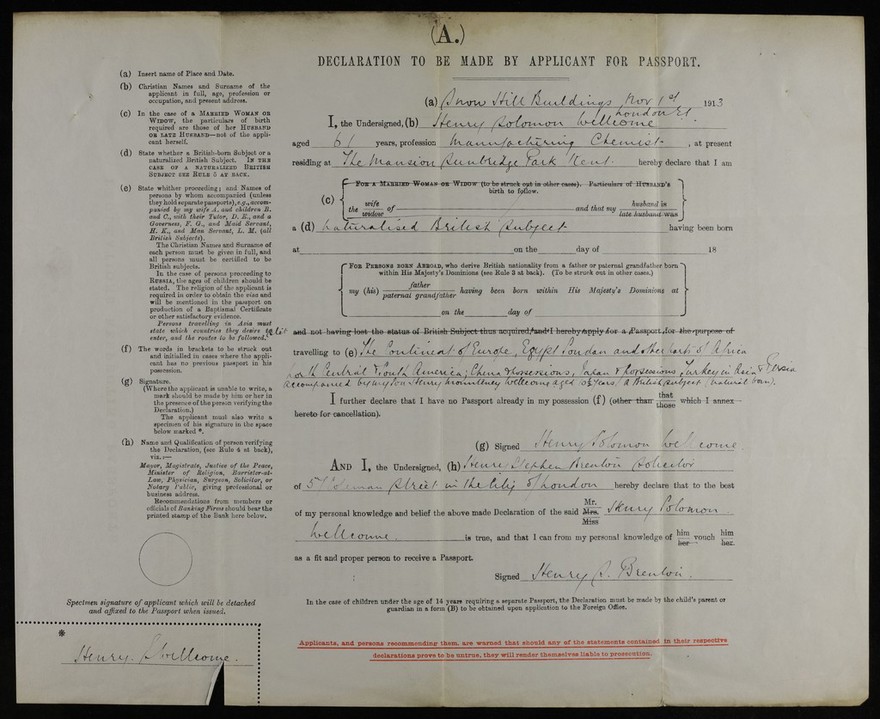 (A.)
DECLARATION TO BE MADE BY APPLICANT FOR PASSPORT.
(a) Insert name of Place and Date.
(b) Christian Names and Surname of the
applicant in full, age, profession or
occupation, and present address.
(c) In the case of a MARRIED WOMAN OR
WIDOW, the particulars of birth
required are those of her HUSBAND
OR LATE HUSBAND—not of the appli-
cant herself.
(d) State whether a British-born Subject or a
naturalized British Subject. IN THE
CASE OF A NATURALIZED BRITISH
SUBJECT SEE RULE 5 AT BACK.
(e) State whither proceeding; and Names of
persons by whom accompanied (unless
they hold separate passports), e.g., accom-
panied by my wife A. and children B.
and C., with their Tutor, D. E., and a
Governess, F. G., and Maid Servant,
H. K., and Man Servant, L. M. (all
British Subjects).
The Christian Names and Surname of
each person must be given in full, and
all persons must be certified to be
British subjects.
In the case of persons proceeding to
RUSSIA, the ages of children should be
stated. The religion of the applicant is
required in order to obtain the visa and
will be mentioned in the passport on
production of a Baptismal Certificate
or other satisfactory evidence.
Persons travelling in Asia must
state which countries they desire to
enter, and the routes to be followed.
(f) The words in brackets to be struck out
and initialled in cases where the appli-
cant has no previous passport in his
possession.
(g) Signature.
(Where the applicant is unable to write, a
mark should be made by him or her in
the presence of the person verifying the
Declaration.)
The applicant must also write a
specimen of his signature in the space
below marked *.
(h) Name and Qualification of person verifying
the Declaration, (see Rule 4 at back),
viz.:—
Mayor, Magistrate, Justice of the Peace,
Minister of Religion, Barrister-at-
Law, Physician, Surgeon, Solicitor, or
Notary Public, giving professional or
business address.
Recommendations from members or
officials of Banking Firms should bear the
printed stamp of the Bank here below.
Specimen signature of applicant which will be detached
and affixed to the Passport when issued.
*
Henry S Wellcome.
(a) Snow Hill Buildings, Nov 1st 1913
London EC
I, the Undersigned, (b) Henry Solomon Wellcome
aged 61 years, profession Manufacturing Chemist, at present
residing at The Mansion Sunbridge Park Kent hereby declare that I am
FOR A MARRIED WOMAN OR WIDOW (to be struck out in other cases). Particulars of HUSBAND'S
birth to follow.
(c) the wife widow of and that my husband is late husband was
a (d) naturalised British Subject having been born
at on the day of 18
FOR PERSONS BORN ABROAD, who derive British nationality from a father or paternal grandfather born
within His Majesty's Dominions (see Rule 3 at back). (To be struck out in other cases.)
my (his) father paternal grandfather having been born within His Majesty's Dominions at
on the day of
and not having lost the status of British Subject thus acquired, and I hereby apply for a Passport for the purpose of
travelling to (e) The Continent of Europe, Egypt Soudan and other parts of Africa
North Central & South America; China & possessions, Japan & possessions Turkey in Asia & Persia
accompanied by my son Henry Mounteney Wellcome aged years, a British subject (natural born).
I further declare that I have no Passport already in my possession (f) (other than that those which I annex
hereto for cancellation).
(g) Signed Henry Solomon Wellcome
AND I, the Undersigned, (h) Henry Stephen Brenton Solicitor
of Coleman Street in the City of London hereby declare that to the best
of my personal knowledge and belief the above made Declaration of the said Mr. Mrs. Miss Henry Solomon
Wellcome. is true, and that I can from my personal knowledge of him her vouch him her
as a fit and proper person to receive a Passport.
Signed Henry S. Brenton.
In the case of children under the age of 14 years requiring a separate Passport, the Declaration must be made by the child's parent or
guardian in a form (B) to be obtained upon application to the Foreign Office.
Applicants, and persons recommending them, are warned that should any of the statements contained in their respective
declarations prove to be untrue, they will render themselves liable to prosecution.